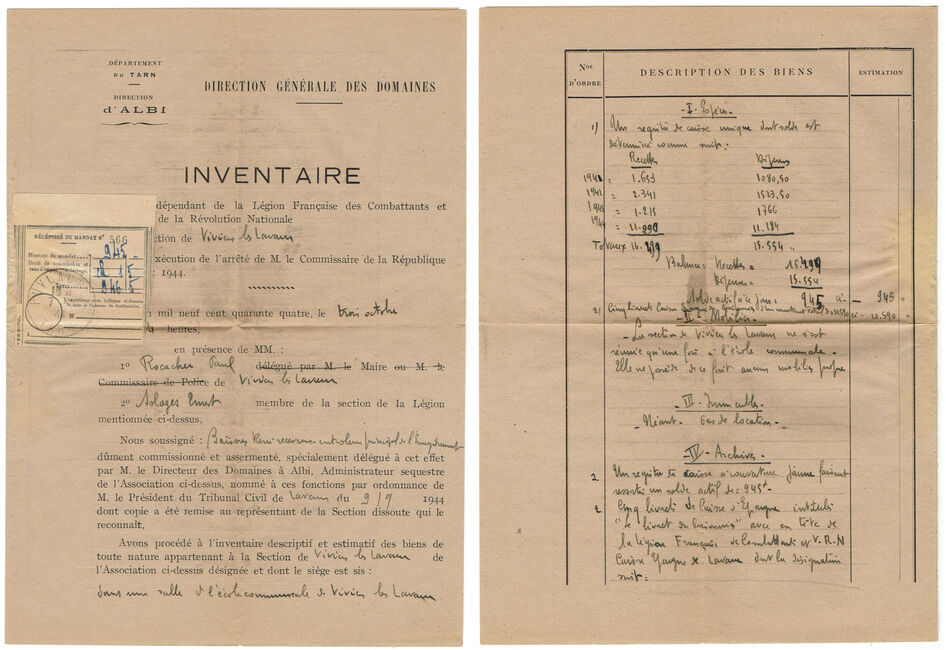 DÉPARTEMENT
DU TARN
DIRECTION
d'ALBI
DIRECTION GÉNÉRALE DES DOMAINES
INVENTAIRE
dépendant de la Légion Française des Combattants et
de la Révolution Nationale
ction de Viviers les Lavaur
xécution de l'arrêté de M. le Commissaire de la République
1944.
RÉCÉPISSÉ DU MANDAT N° 566
Montant du mandat 945
Total 946 5
n mil neuf cent quarante quatre, le trois octobre
heures,
en présence de MM. :
1° Rocacher Paul délégué par M. le Maire ou M. le
Commissaire de Police de Viviers les Lavaur
2° Solages Ernest membre de la section de la Légion
mentionnée ci-dessus,
Nous soussigné : receveur-contrôleur principal de l'Enregistrement
dûment commissionné et assermenté, spécialement délégué à cet effet
par M. le Directeur des Domaines à Albi, Administrateur sequestre
de l'Association ci-dessus, nommé à ces fonctions par ordonnance de
M. le Président du Tribunal Civil de Lavaur du 9/9 1944
dont copie a été remise au représentant de la Section dissoute qui le
reconnaît,
Avons procédé à l'inventaire descriptif et estimatif des biens de
toute nature appartenant à la Section de Viviers les Lavaur de
l'Association ci-dessus désignée et dont le siège est sis :
dans une salle d'école communale de Viviers les Lavaur
Nos D'ORDRE
DESCRIPTION DES BIENS
ESTIMATION
I - Espèces.
1) Un registre de caisse unique dont solde est
déterminé comme suit :
Recettes Dépenses
1941 = 1.653 1080,50
1942 = 2.341 1523,50
1943 = 1.215 1766
1944 = 11.290 11.184
Totaux 16.499 15.554
Balance : Recettes = 16.499
Dépenses = 15.554
Solde actif à ce jour = 945 ci - 945
2) Cinq livrets Caisse ci - 10.590
II - Mobilier
- La section de Viviers les Lavaur ne s'est
réunie qu'une fois à l'école communale -
Elle ne possède de ce fait aucun mobilier propre
III - Immeubles -
- Néant - Pas de location -
IV - Archives -
Un registre de caisse à couverture jaune faisant
ressortir un solde actif de : 945 f
2 Cinq livrets de Caisse d'Epargne intitulés
"le livret du prisonnier" avec en tête de
la Légion Française des Combattants et V.R.N
Caisse Epargne de Lavaur dont la désignation
suit :